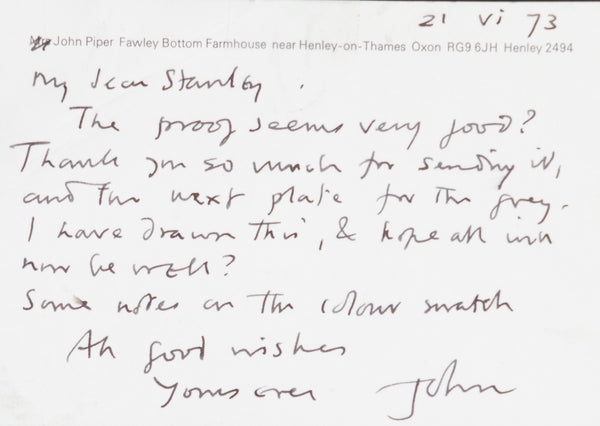 21 vi 73
Mrs John Piper Fawley Bottom Farmhouse near Henley-on-Thames Oxon RG9 6JH Henley 2494
My dear Stanley.
The proof seems very good?
Thank you so much for sending it,
and the next plate for the grey.
I have drawn this, & hope all will
now be well?
Some notes on the colour swatch
All good wishes
Yours ever John